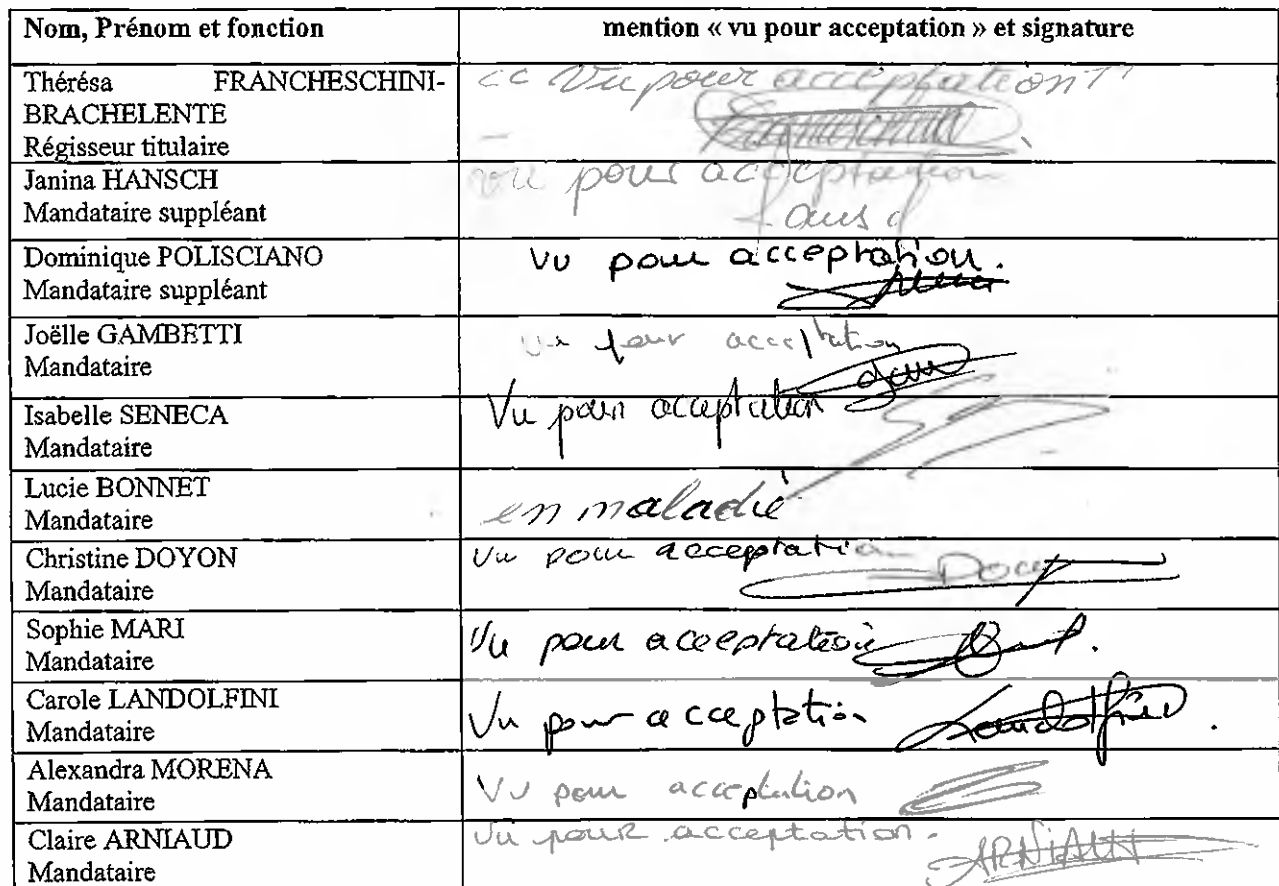 Nom, Prénom et fonction
mention « vu pour acceptation » et signature
Thérésa FRANCHESCHINI-
BRACHELENTE
Régisseur titulaire
<< Vu pour acceptation"
Janina HANSCH
Mandataire suppléant
vu pour acceptation
Dominique POLISCIANO
Mandataire suppléant
vu pour acceptation.
Joëlle GAMBETTI
Mandataire
vu pour acceptation
Isabelle SENECA
Mandataire
Vu pour acceptation
Lucie BONNET
Mandataire
en maladie
Christine DOYON
Mandataire
Vu pour acceptation
Sophie MARI
Mandataire
Vu pour acceptation
Carole LANDOLFINI
Mandataire
Vu pour acceptation
Landolfini
Alexandra MORENA
Mandataire
VU pour acceptation
Claire ARNIAUD
Mandataire
Vu pour acceptation.
ARNIAUD